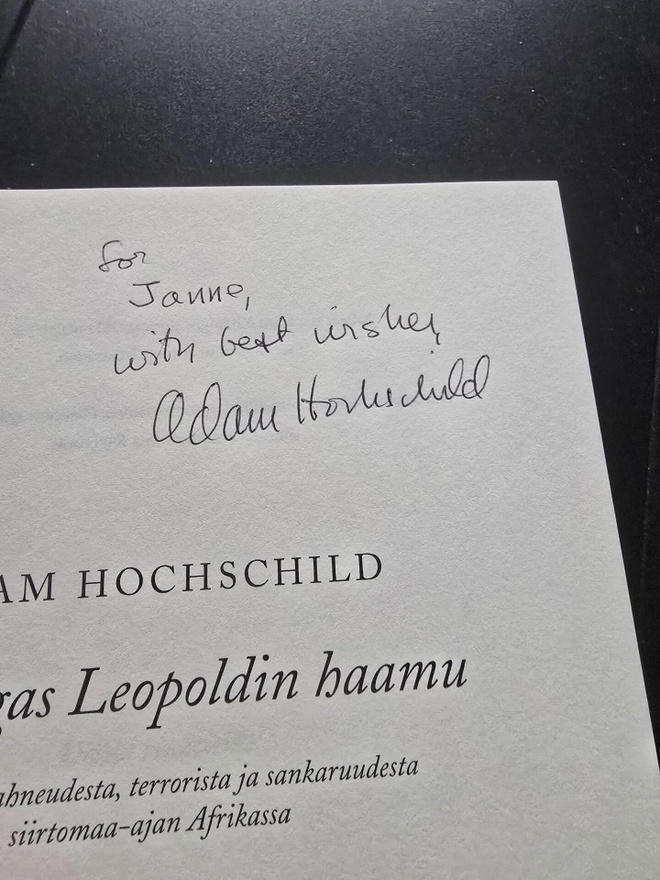 for
Janne,
with best wishes,
Adam Hochschild
AM HOCHSCHILD
gas Leopoldin haamu
ahneudesta, terrorista ja sankaruudesta
siirtomaa-ajan Afrikassa